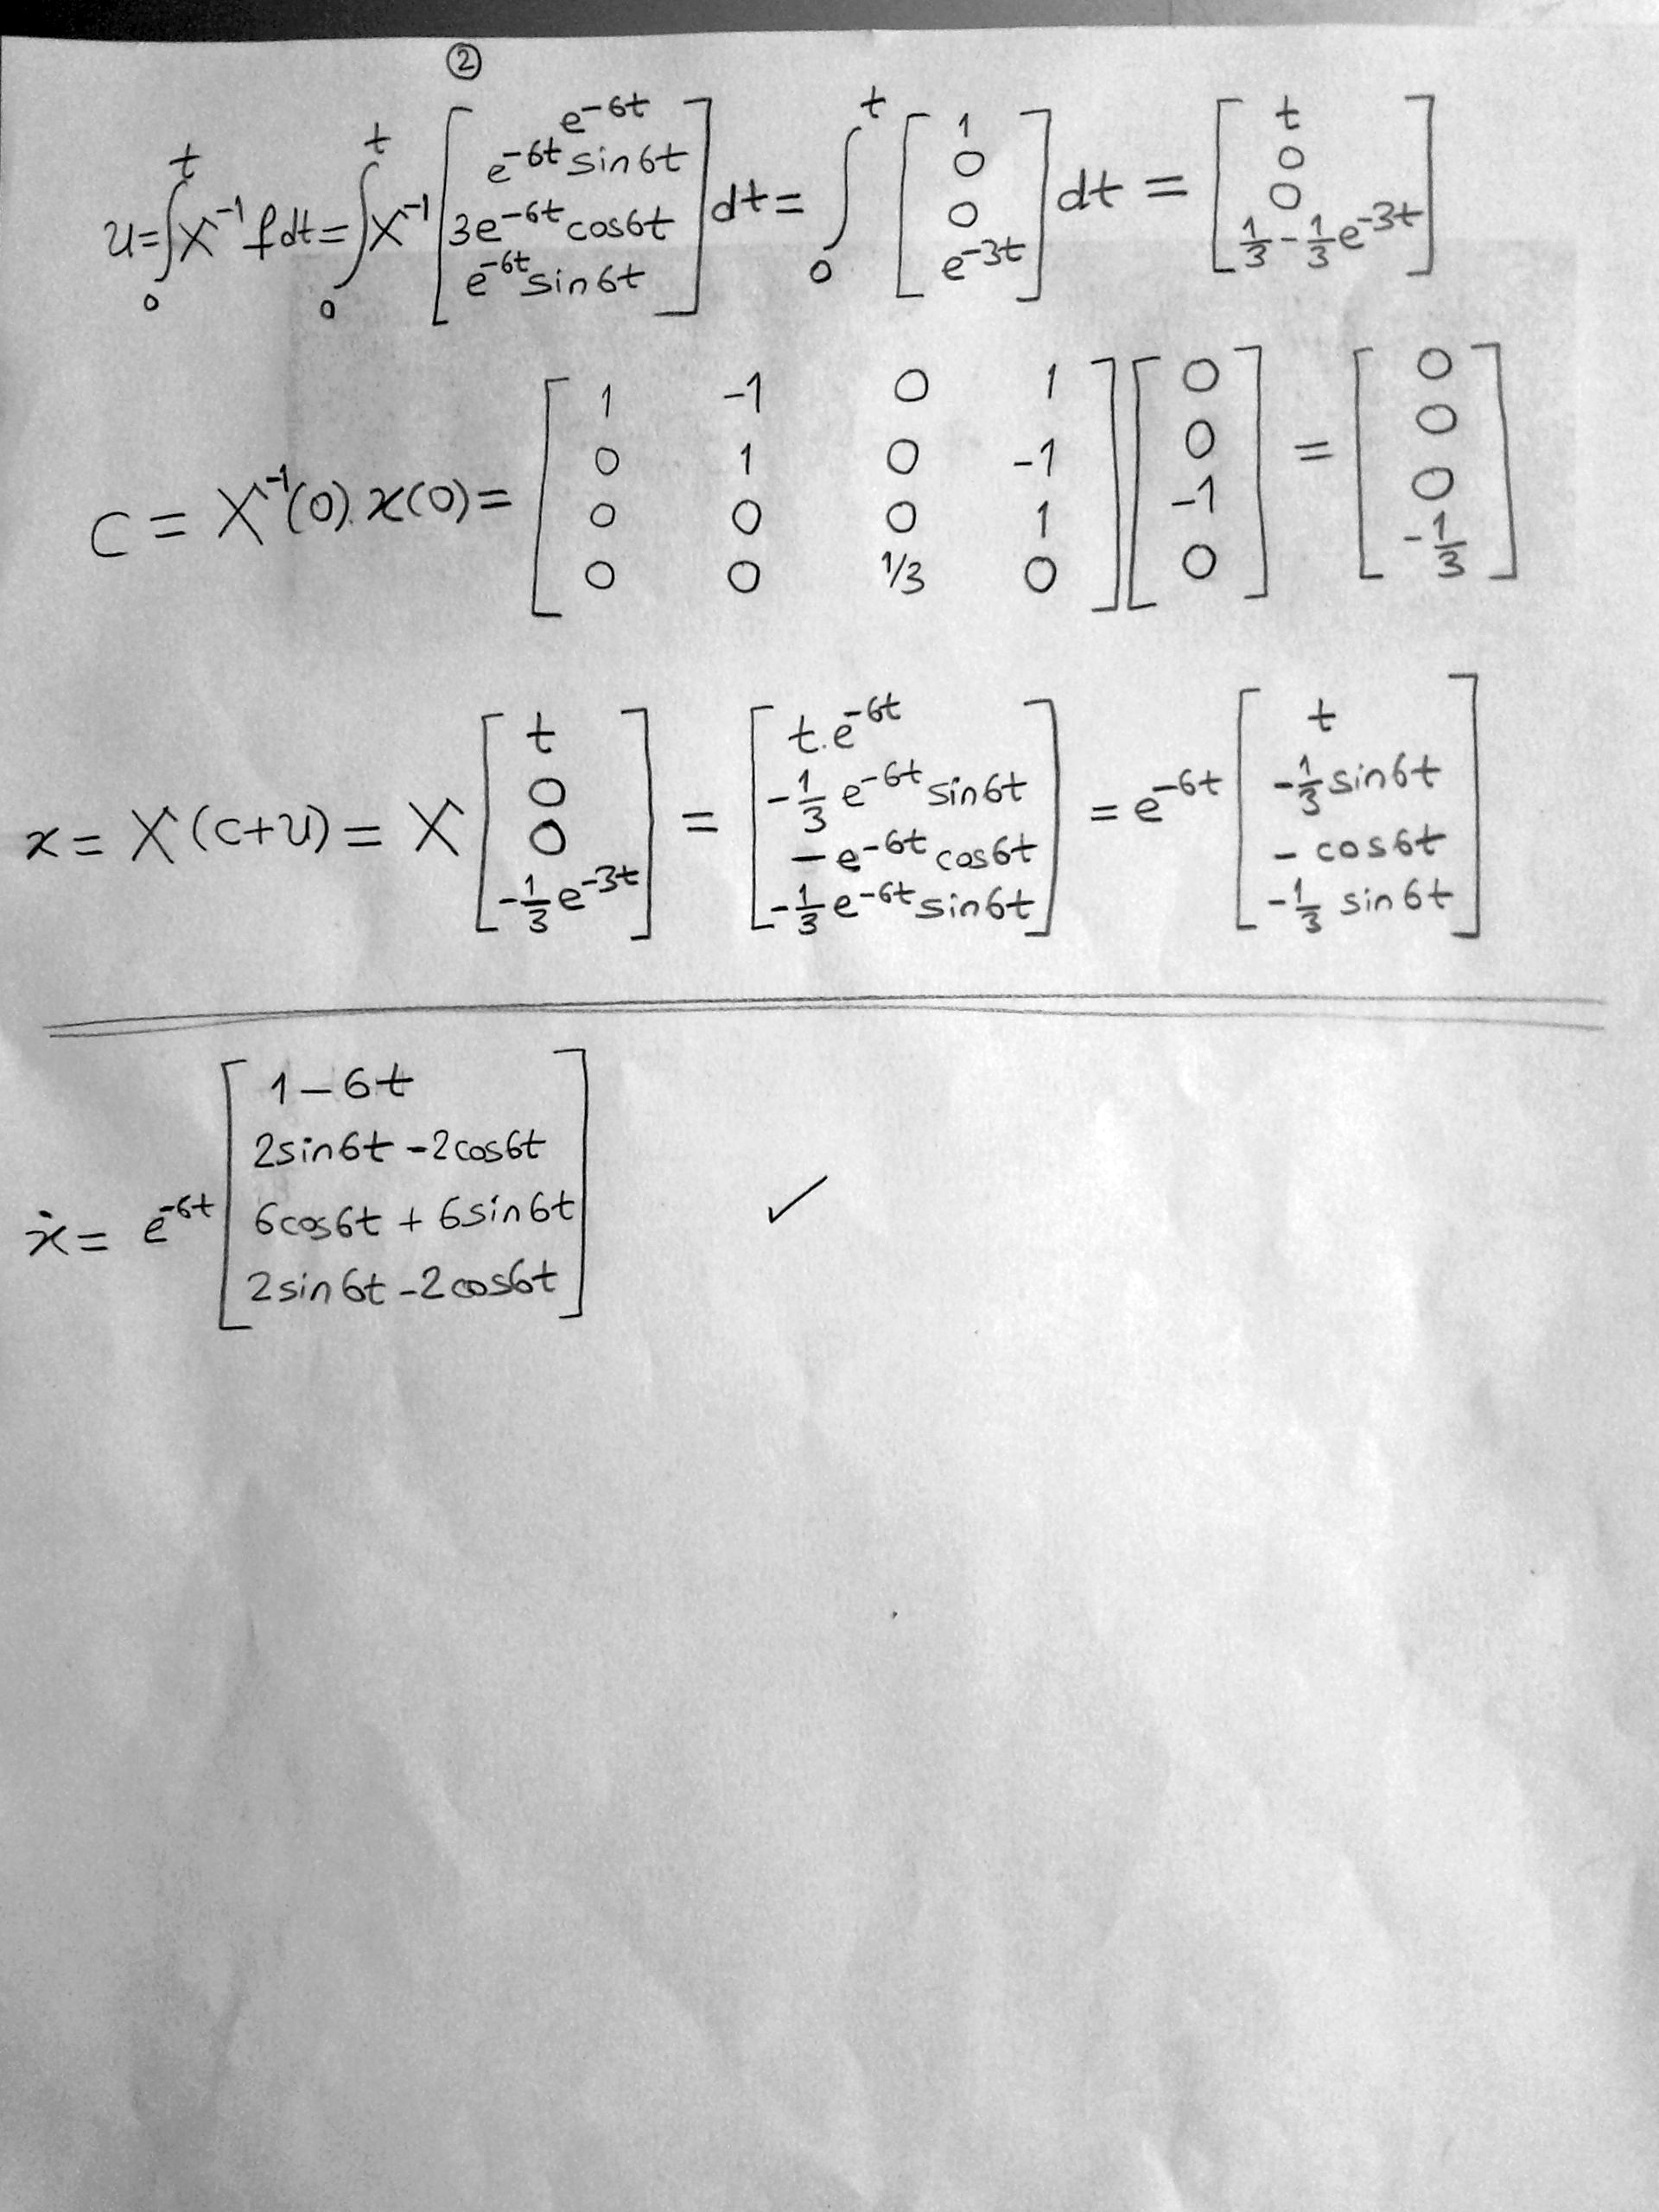 ②
u = ∫₀ᵗ X⁻¹ f dt = ∫₀ᵗ X⁻¹ [e^{-6t}; e^{-6t} sin6t; 3e^{-6t} cos6t; e^{-6t} sin6t] dt = ∫₀ᵗ [1; 0; 0; e^{-3t}] dt = [t; 0; 0; 1/3 - 1/3 e^{-3t}]
C = X⁻¹(0). x(0) = [1 -1 0 1; 0 1 0 -1; 0 0 0 1; 0 0 1/3 0] [0; 0; -1; 0] = [0; 0; 0; -1/3]
x = X (C+u) = X [t; 0; 0; -1/3 e^{-3t}] = [t.e^{-6t}; -1/3 e^{-6t} sin6t; -e^{-6t} cos6t; -1/3 e^{-6t} sin6t] = e^{-6t} [t; -1/3 sin6t; - cos6t; -1/3 sin6t]
ẋ = e^{-6t} [1-6t; 2sin6t -2cos6t; 6cos6t + 6sin6t; 2sin6t -2cos6t] ✓